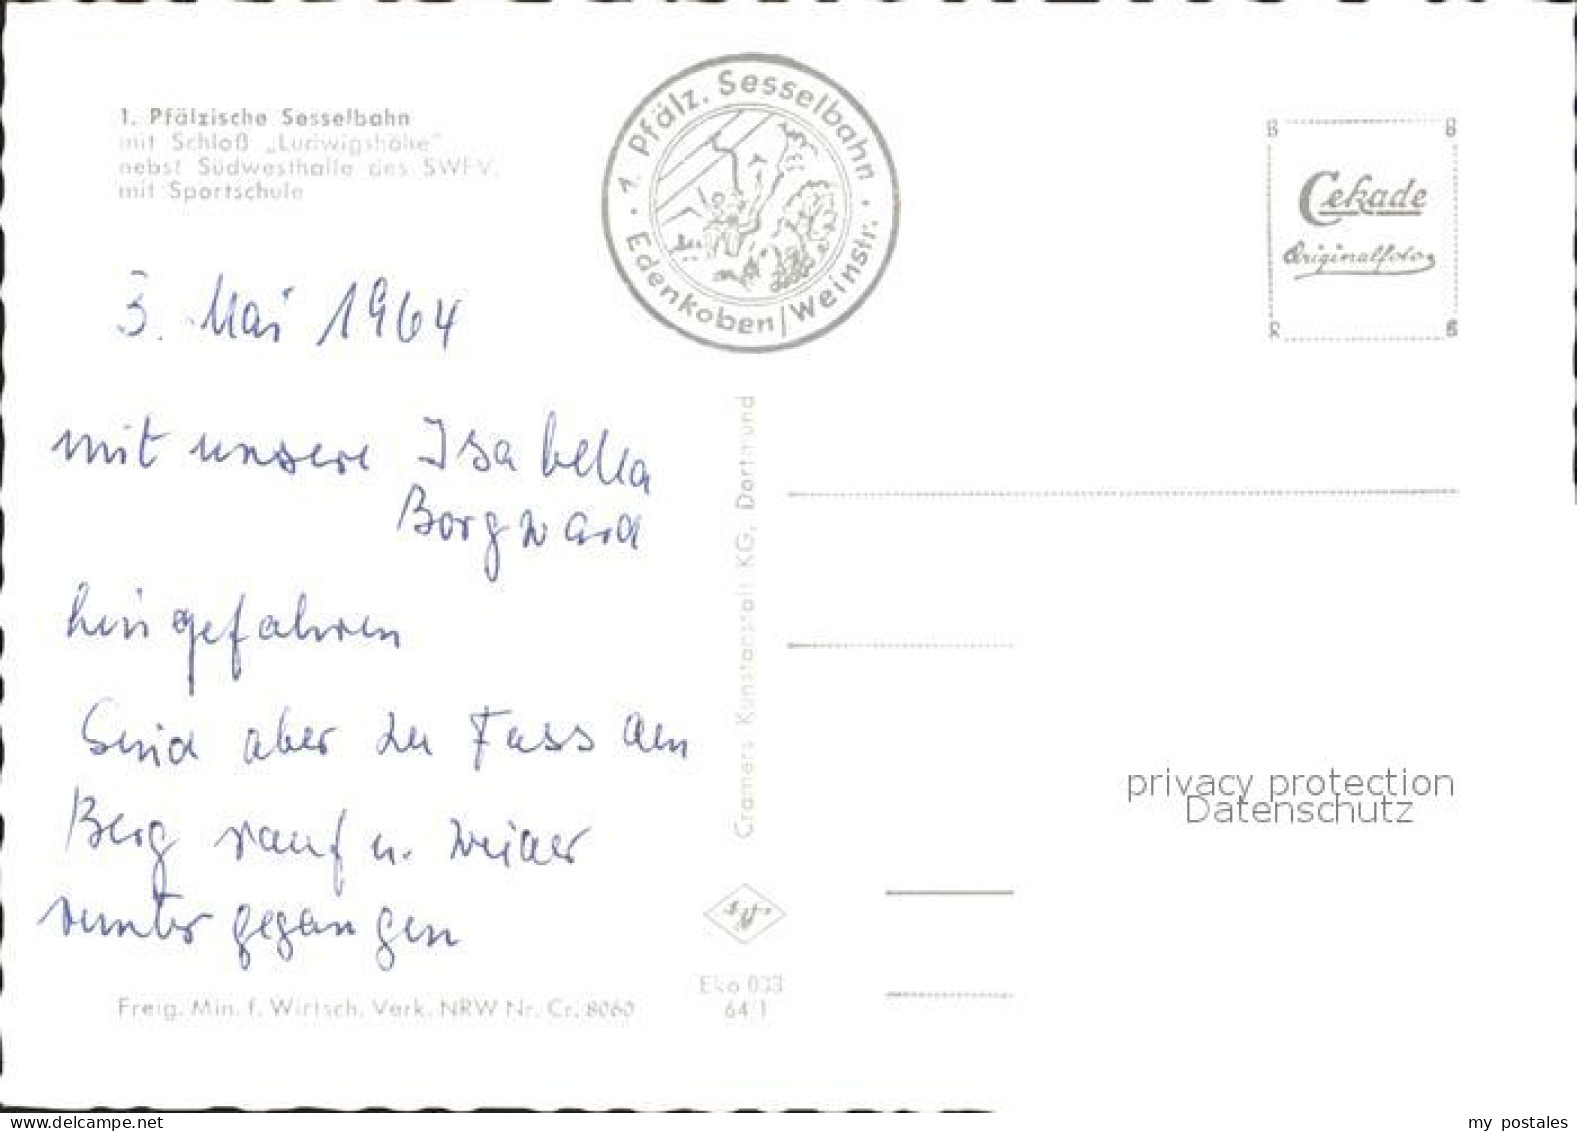 1. Pfälzische Sesselbahn
mit Schloß „Ludwigshöhe"
nebst Südwesthalle des SWFV.
mit Sportschule
1. Pfälz. Sesselbahn
Edenkoben/Weinstr.
Cekade
Originalfoto
3. Mai 1964
mit unsere Isabella
Borgward
hingefahren
Sind aber zu Fuss den
Berg rauf u. wieder
runter gegangen
Cramers Kunstanstalt KG, Dortmund
privacy protection
Datenschutz
Eko 033
64/1
Freig. Min. f. Wirtsch. Verk. NRW Nr. Cr. 8060
www.delcampe.net
my postales